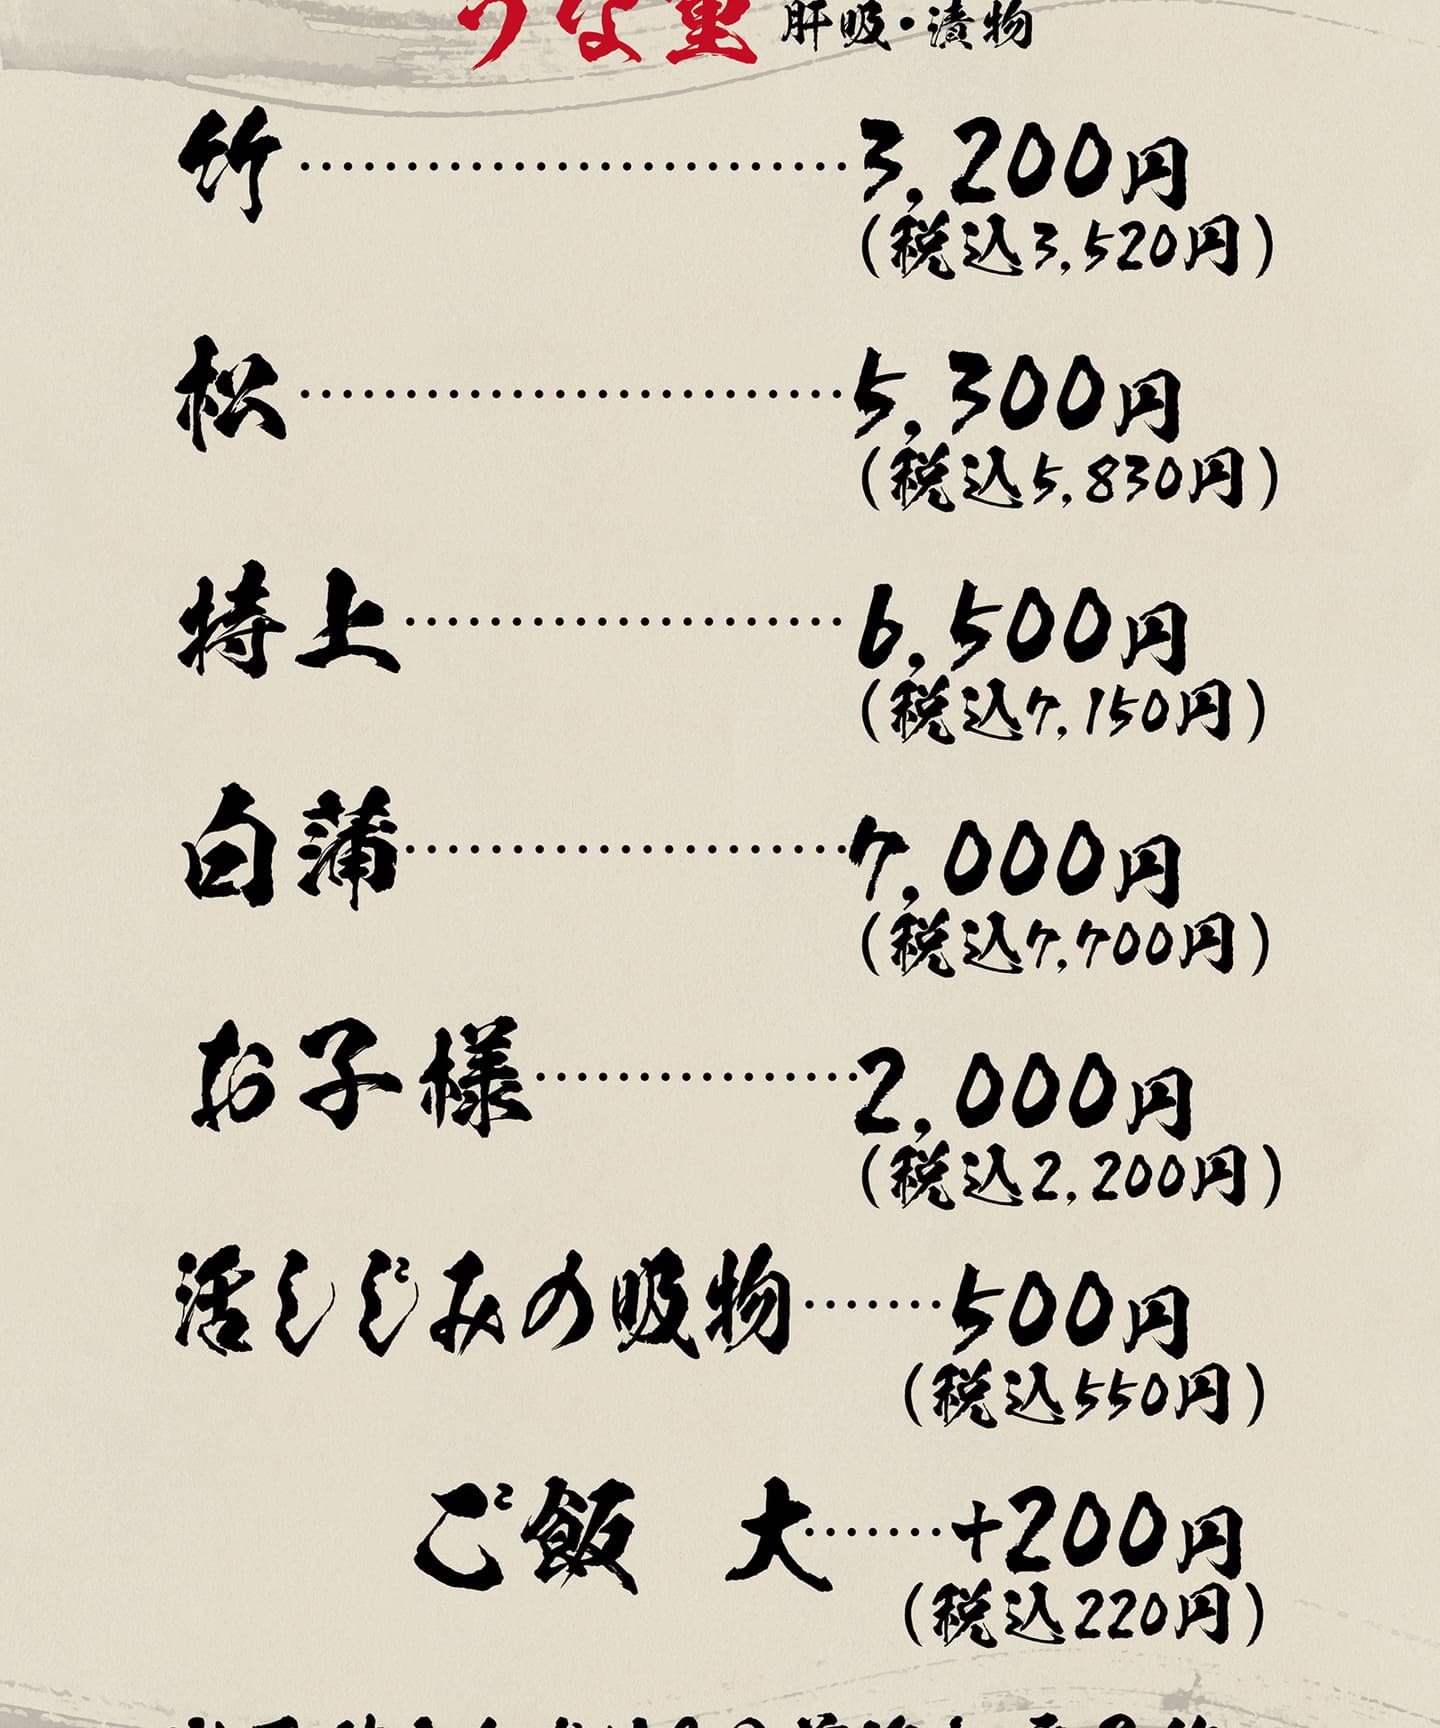 うな重 肝吸・漬物
竹……3,200円
(税込3,520円)
松……5,300円
(税込5,830円)
特上……6,500円
(税込7,150円)
白蒲……7,000円
(税込7,700円)
お子様……2,000円
(税込2,200円)
活しじみの吸物……500円
(税込550円)
ご飯 大……+200円
(税込220円)